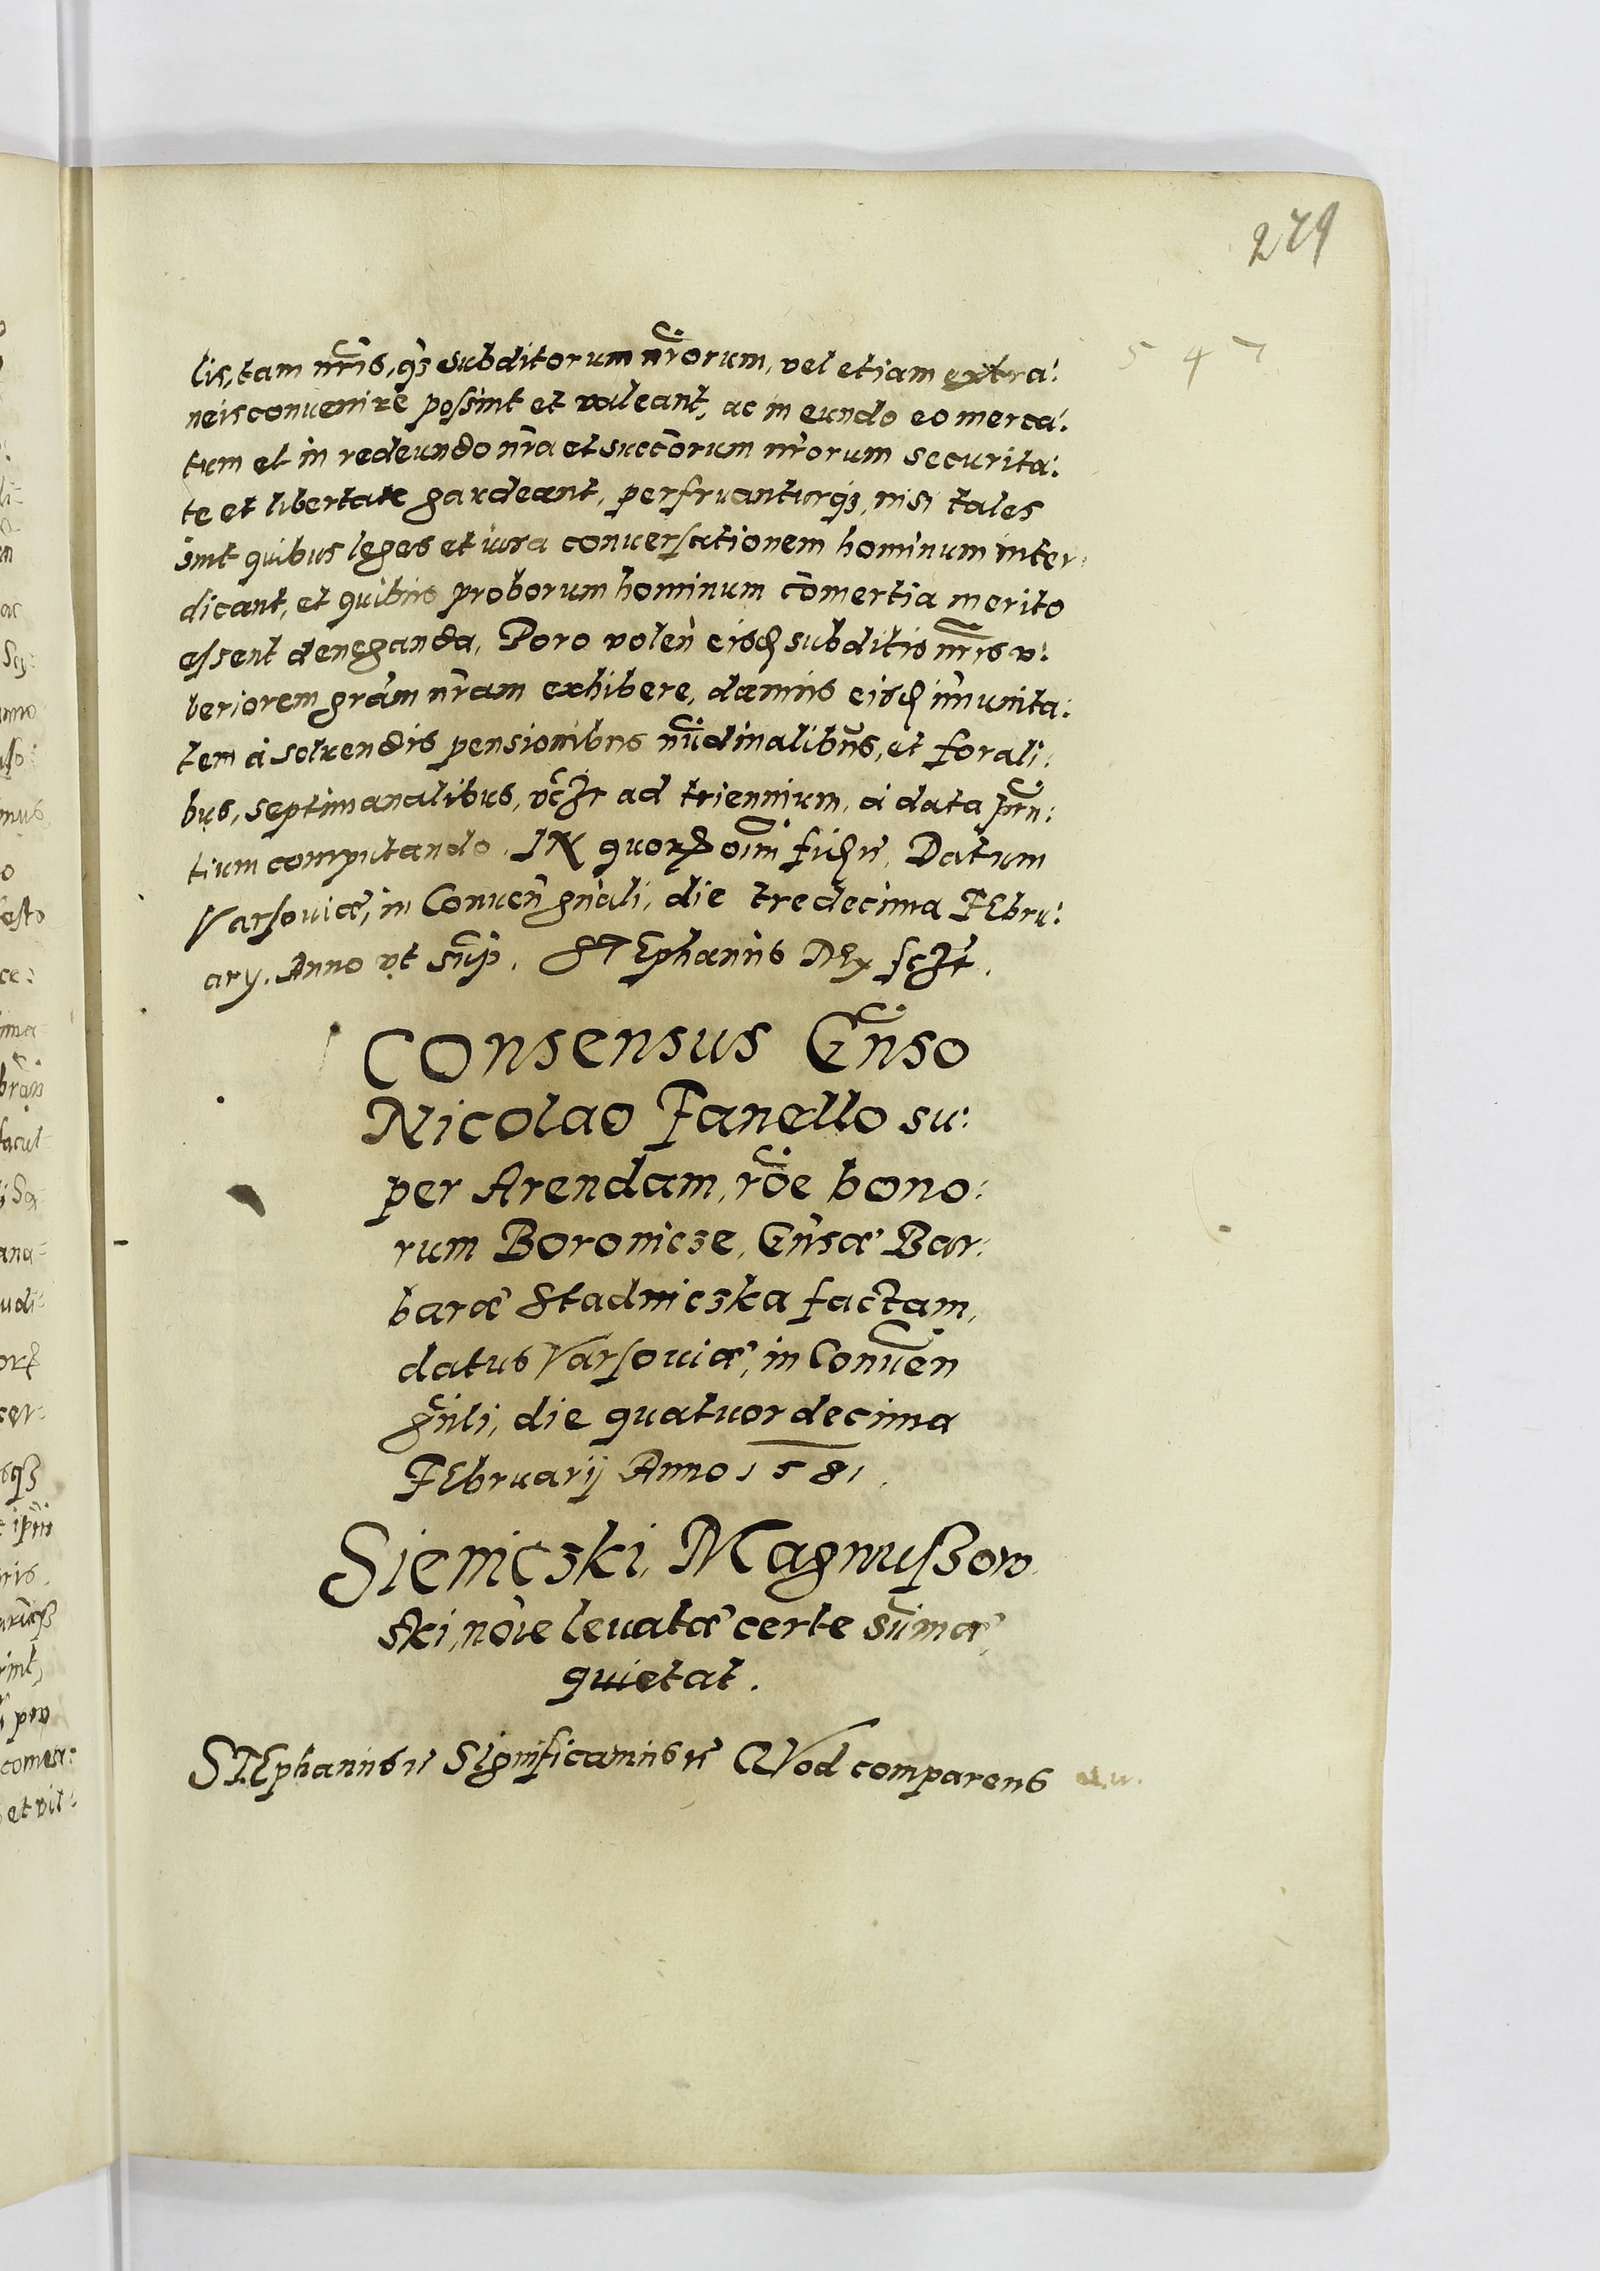 279
547
lis, tam nr̃is, q̃ʒ subditorum nr̃orum, vel etiam extra:
neis convenire possint et valeant, ac in eundo eo merca:
tum et in redeundo nr̃a et succõrum nr̃orum securita:
te et libertate gaudeant, perfruanturq̃ʒ, nisi tales
sint quibus leges et iura conversationem hominum inter:
dicant, et quibus proborum hominum cõmertia merito
essent deneganda, Poro volen̄ eisd̃ subditis nr̃is v:
beriorem grãm nr̃am exhibere, damus eisd̃ im̃unita:
tem à solvendis pensionibus nũdinalibus, et forali:
bus, septimanalibus, ad triennium, à data pñ:
tium computando. IN quorꝝ oĩm fid̃ Datum
Varsoviæ, in Conven̄ gñali, die tredecima FEbru:
ary. Anno vt sũp. STEphanus REx
COnsensus Gñso
Nicolao Fanello su:
per Arendam, rõe bono:
rum Boronicze, Gñsæ Bar:
baræ Stadniczka factam,
datus Varsoviæ, in Conven̄
gñli, die quatuordecima
FEbruarij Anno 1581.
Sieniczki, Magnuszow
ski, nõie levatæ certe sũmæ,
quietat.
STEphanus Significamus QVod comparens